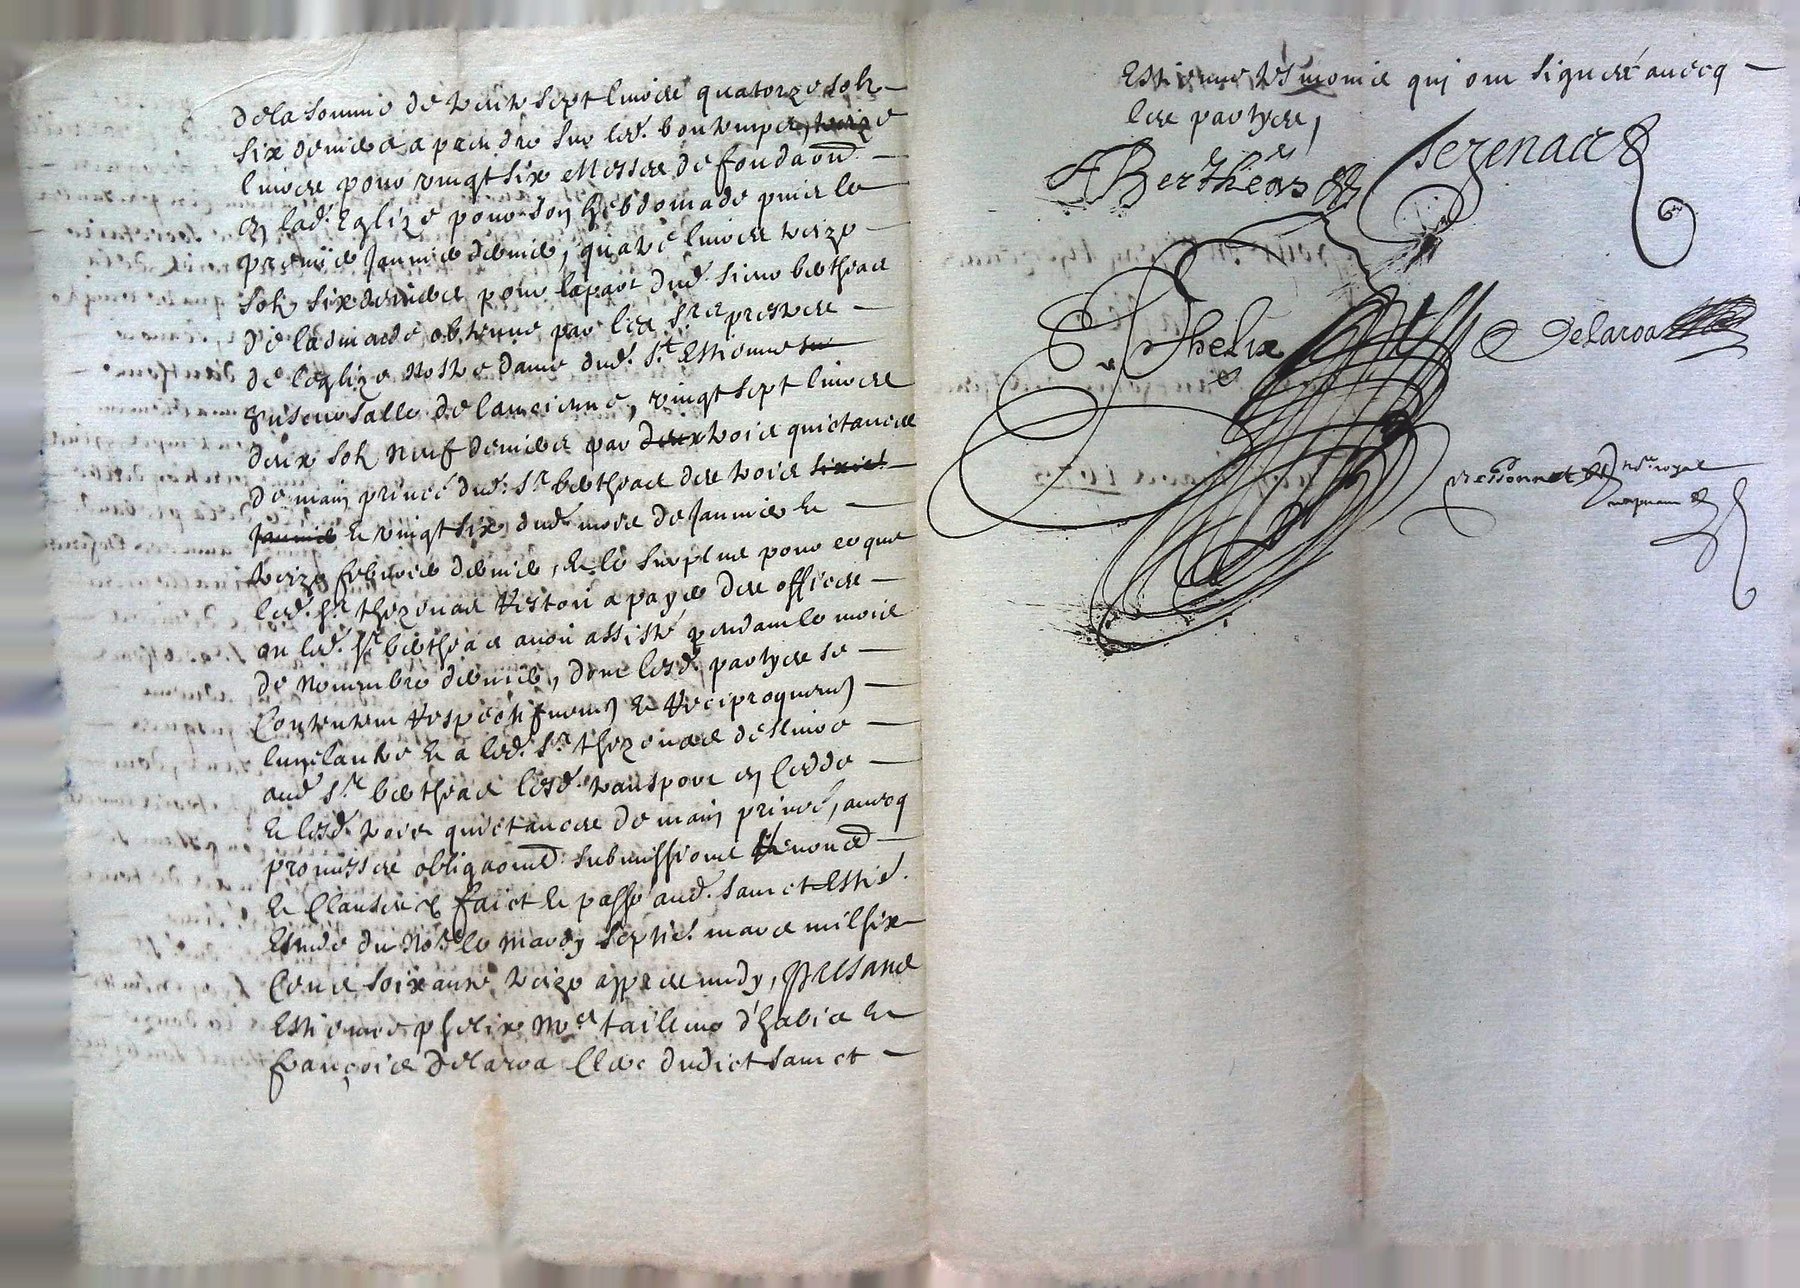 de la somme de trente sept livres quatorze solz
six deniers a prendre sur led. bontemps, treize
livres pour vingt six Messes de fondaon̄
en lad. Eglize pour son hebdomade puis le
premier Janvier dernier, quatre livres treize
solz six deniers pour la part dud. sieur bertheas
de la obtenue par les srs prestres
de leglize Nostre dame dud. St Estienne
vingt sept livres
deux solz neuf deniers par trois quictances
de main privée dud. Sr bertheas des trois
Janvier et vingt six dud. mois de Janvier et
treize febvrier dernier, et le surplus pour ce que
led. Sr thezenas restoit a payer des offices
ou led. Sr bertheas avoit assisté pendant le mois
de Novembre dernier, dont lesd. partyes se
Contentent Respectifvemt et Reciproquemt
et a led. Sr thezenas deslivré
aud. Sr bertheas lesd. transport et Cedde
et lesd. trois quictances de main privée, avecq
promesses obligaons submissions Renonc̄
et Clauses faict et passé aud. Sainct Estie.
Estude du Nore le Mardy septie. mars mil six
Cents soixante treize appres midy, Presans
Estienne phelix Me tailleur d'habis et
françois Delaroa Clerc dudict Sainct
Estienne tesmoins qui ont signéé avecq
lesd partyes,
A Bertheas
Tezenas
E. Phelix
Delaroa
Nore royal